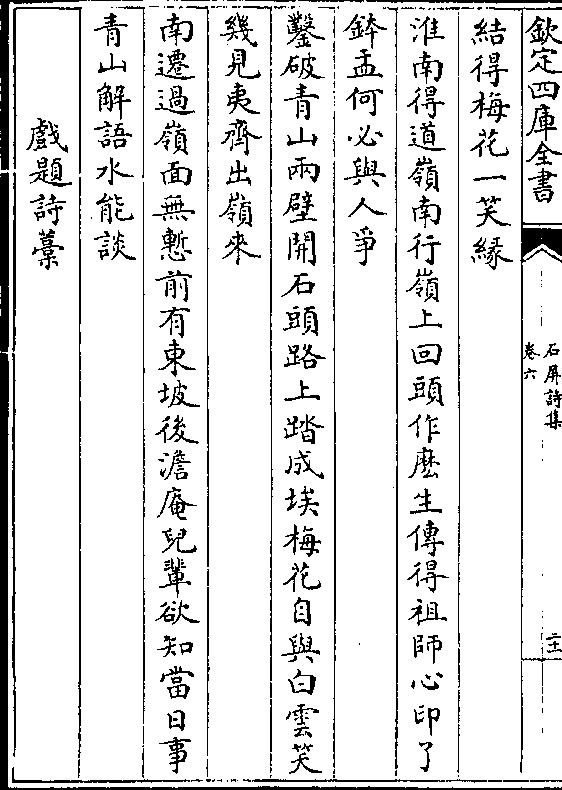 欽定四庫全書
石屏詩集
卷六
二十
結得梅花一笑緣
淮南得道嶺南行嶺上回頭作麽生傳得祖師心印了
鉢盂何必與人爭
鑿破青山兩壁開石頭路上踏成埃梅花自與白雲笑
幾見夷齊出嶺來
南遷過嶺面無慙前有東坡後澹庵兒輩欲知當日事
青山解語水能談
戲題詩藁